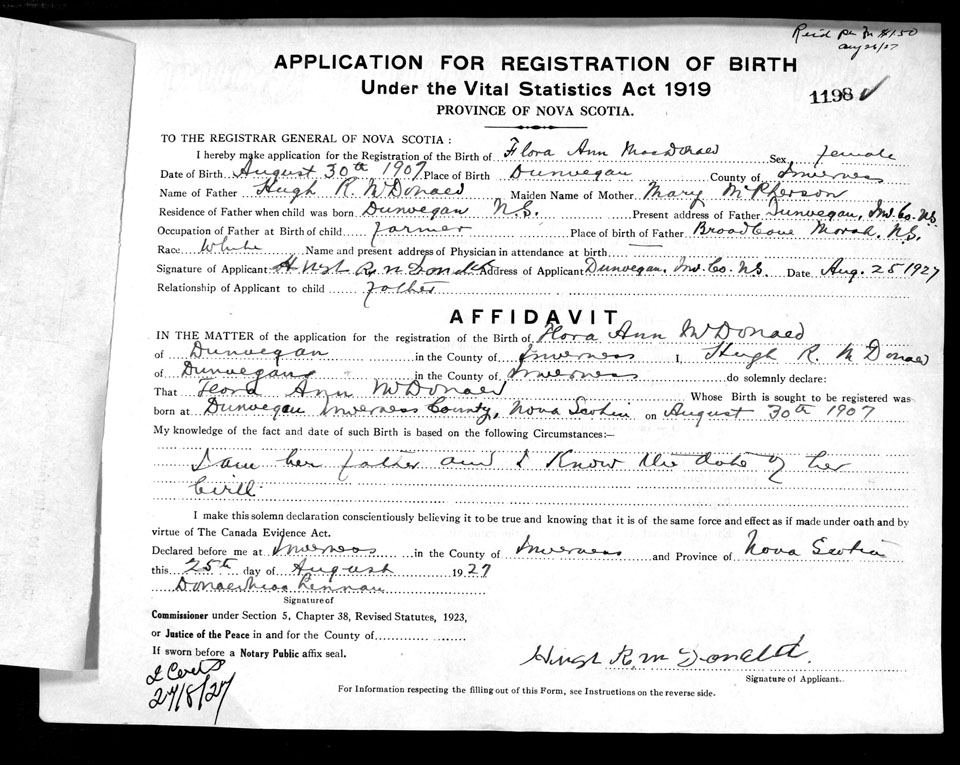 Rec'd $1.50
Aug 26/27
APPLICATION FOR REGISTRATION OF BIRTH
Under the Vital Statistics Act 1919
1198 ✓
PROVINCE OF NOVA SCOTIA.
TO THE REGISTRAR GENERAL OF NOVA SCOTIA :
I hereby make application for the Registration of the Birth of Flora Ann MacDonald Sex female
Date of Birth August 30th 1907 Place of Birth Dunvegan County of Inverness
Name of Father Hugh R McDonald Maiden Name of Mother Mary McPherson
Residence of Father when child was born Dunvegan N.S. Present address of Father Dunvegan, Inv. Co. N.S.
Occupation of Father at Birth of child farmer Place of birth of Father Broad Cove Marsh, N.S.
Race White Name and present address of Physician in attendance at birth —
Signature of Applicant Hugh R McDonald Address of Applicant Dunvegan, Inv. Co. N.S. Date Aug. 25 1927
Relationship of Applicant to child father
AFFIDAVIT
IN THE MATTER of the application for the registration of the Birth of Flora Ann McDonald
of Dunvegan in the County of Inverness I, Hugh R. McDonald
of Dunvegan in the County of Inverness do solemnly declare:
That Flora Ann McDonald Whose Birth is sought to be registered was
born at Dunvegan Inverness County, Nova Scotia on August 30th 1907
My knowledge of the fact and date of such Birth is based on the following Circumstances:—
I am her father and I know the date of her
birth.
I make this solemn declaration conscientiously believing it to be true and knowing that it is of the same force and effect as if made under oath and by
virtue of The Canada Evidence Act.
Declared before me at Inverness in the County of Inverness and Province of Nova Scotia
this 25th day of August 1927
Donald MacLennan
Signature of
Commissioner under Section 5, Chapter 38, Revised Statutes, 1923,
or Justice of the Peace in and for the County of
If sworn before a Notary Public affix seal.
Hugh R. McDonald.
Signature of Applicant.
27/8/27
For Information respecting the filling out of this Form, see Instructions on the reverse side.